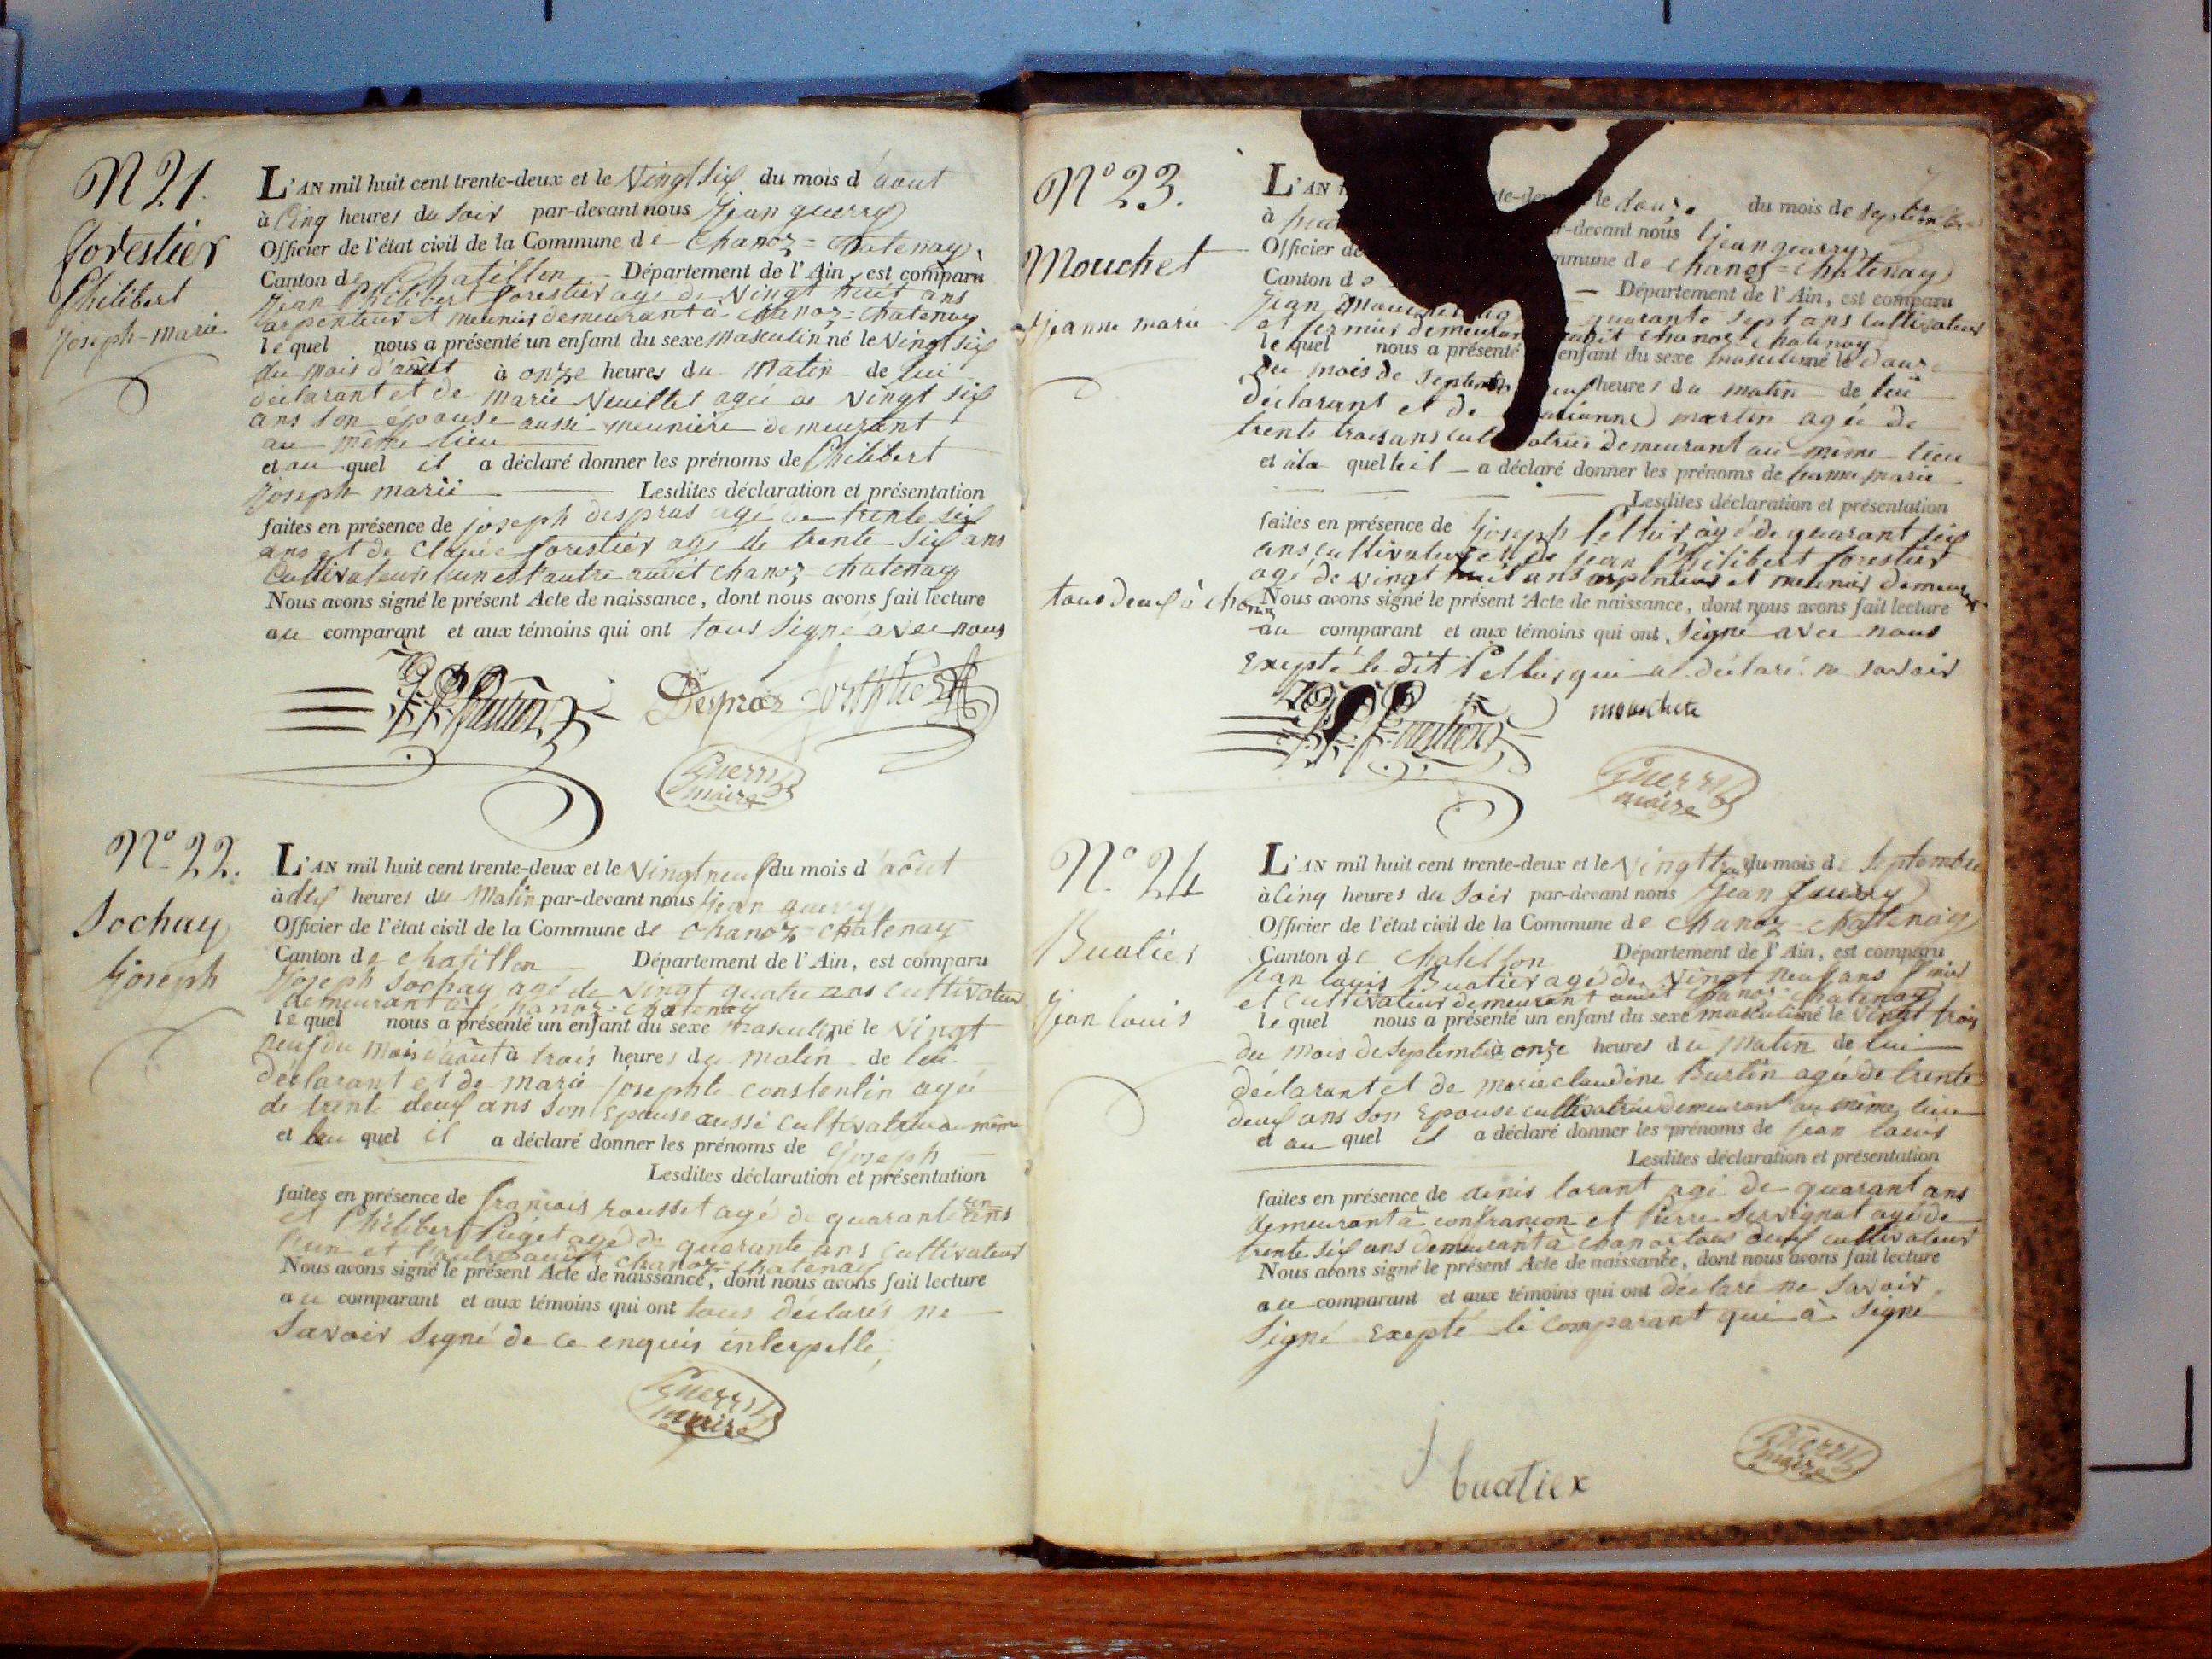 N 21.
forestier
Philibert
joseph-marie
L'AN mil huit cent trente-deux et le Vingt six du mois d'aout
à Cinq heures du Soir par-devant nous Jean guerry
Officier de l'état civil de la Commune de Chanoz=Chatenay
Canton de Chatillon — Département de l'Ain, est comparu
Jean Philibert forestier agé de Vingt huit ans
arpenteur et meunier demeurant à Chanoz=Chatenay
lequel nous a présenté un enfant du sexe masculin né le Vingt six
du mois d'août à onze heures du Matin de lui
déclarant et de marie Neuillet agée de Vingt six
ans son épouse aussi meunière demeurant
au même lieu
et au quel il a déclaré donner les prénoms de Philibert
joseph marie — Lesdites déclaration et présentation
faites en présence de joseph despras agé de trente six
ans et de Claude forestier agé de trente six ans
Cultivateurs l'un et l'autre audit Chanoz-Chatenay
Nous avons signé le présent Acte de naissance, dont nous avons fait lecture
au comparant et aux témoins qui ont tous Signé avec nous
Despras
Guerry
maire
Nº 22.
Sochay
joseph
L'AN mil huit cent trente-deux et le Vingt neuf du mois d'août
à dix heures du Matin par-devant nous Jean guerry
Officier de l'état civil de la Commune de Chanoz-Chatenay
Canton de Chatillon — Département de l'Ain, est comparu
Joseph Sochay agé de Vingt quatre ans Cultivateur
demeurant à Chanoz-Chatenay
lequel nous a présenté un enfant du sexe masculin né le Vingt
neuf du mois d'août à trois heures du matin de lui
déclarant et de marie josephte constentin agée
de trente deux ans son Epouse aussi cultivatrice au même
et au quel il a déclaré donner les prénoms de joseph
Lesdites déclaration et présentation
faites en présence de françois rousset agé de quarante ans
et Philibert Puget agé de quarante ans Cultivateur
l'un et l'autre audit Chanoz-Chatenay
Nous avons signé le présent Acte de naissance, dont nous avons fait lecture
au comparant et aux témoins qui ont tous déclarés ne
Savoir Signé de ce enquis interpelle
Guerry
maire
Nº 23.
Mouchet
jeanne marie
L'AN le douze du mois de Septembre
à par-devant nous Jean guerry
Officier de Commune de Chanoz=Chatenay
Canton de — Département de l'Ain, est comparu
Jean quarante Sept ans Cultivateur
et fermier demeurant audit Chanoz-Chatenay
lequel nous a présenté enfant du sexe masculin né le douze
du mois de Septembre heures du matin de lui
déclarant et de martin agée de
trente trois ans cultivatrice demeurant au même lieu
et à la quelle il — a déclaré donner les prénoms de jeanne marie
Lesdites déclaration et présentation
faites en présence de joseph agé de quarant six
ans cultivateur et de jean Philibert forestier
agé de vingt huit ans arpenteur et meunier demeur
tous deux à chanoz
Nous avons signé le présent Acte de naissance, dont nous avons fait lecture
au comparant et aux témoins qui ont Signé avec nous
Exepté le dit qui a déclaré ne savoir
mouchete
Guerry
maire
Nº 24
Buatier
jean louis
L'AN mil huit cent trente-deux et le Vingt trois du mois de Septembre
à Cinq heures du Soir par-devant nous Jean Guerry
Officier de l'état civil de la Commune de Chanoz-Chatenay
Canton de Chatillon Département de l'Ain, est comparu
jean louis Buatier agé de Vingt neuf ans
et Cultivateur demeurant audit Chanoz-Chatenay
lequel nous a présenté un enfant du sexe masculin né le Vingt trois
du mois de Septembre à onze heures du Matin de lui
déclarant et de marie claudine Burtin agée de trente
deux ans son Epouse cultivatrice demeurant au même lieu
et au quel il a déclaré donner les prénoms de jean louis
Lesdites déclaration et présentation
faites en présence de denis lorant agé de quarant ans
demeurant à confrançon et Pierre Servignat agé de
trente six ans demeurant à Chanoz tous deux cultivateur
Nous avons signé le présent Acte de naissance, dont nous avons fait lecture
au comparant et aux témoins qui ont déclaré ne Savoir
Signé Exepté le comparant qui à Signe
buatier
Guerry
maire